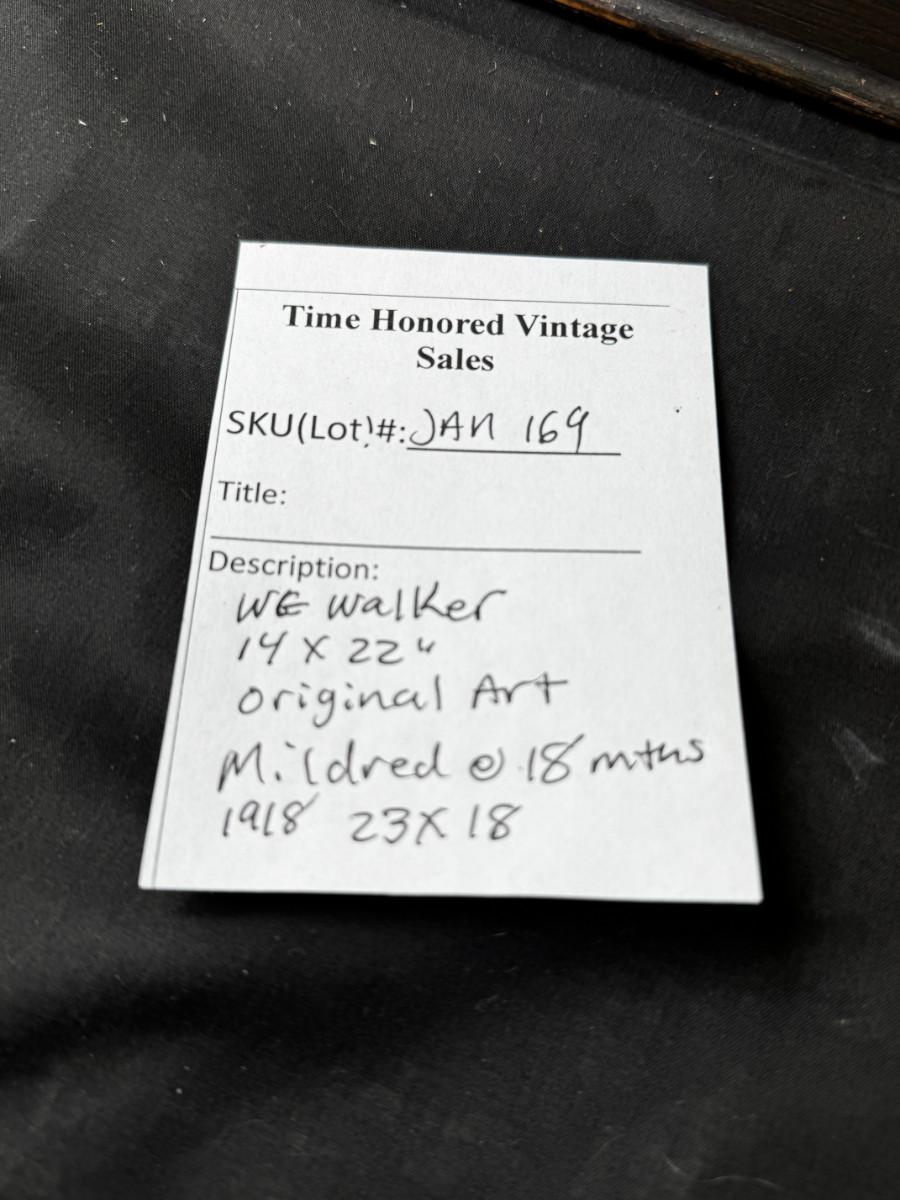 Time Honored Vintage
Sales
SKU(Lot)#: JAN 169
Title:
Description:
WE Walker
14 X 22"
original Art
Mildred @ 18 mths
1918 23X18